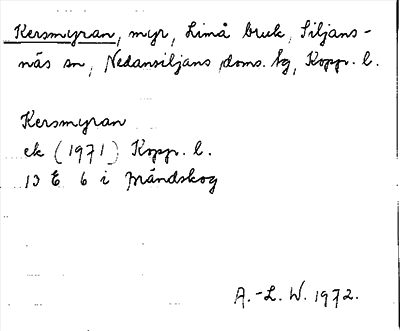 Kersmyran, myr, Limå bruk, Siljans-
näs sn, Nedansiljans doms. hg, Kopp. l.
Kersmyran
ek (1971) Kopp. l.
13 E 6 i Mändskog
A.-L. W. 1972.